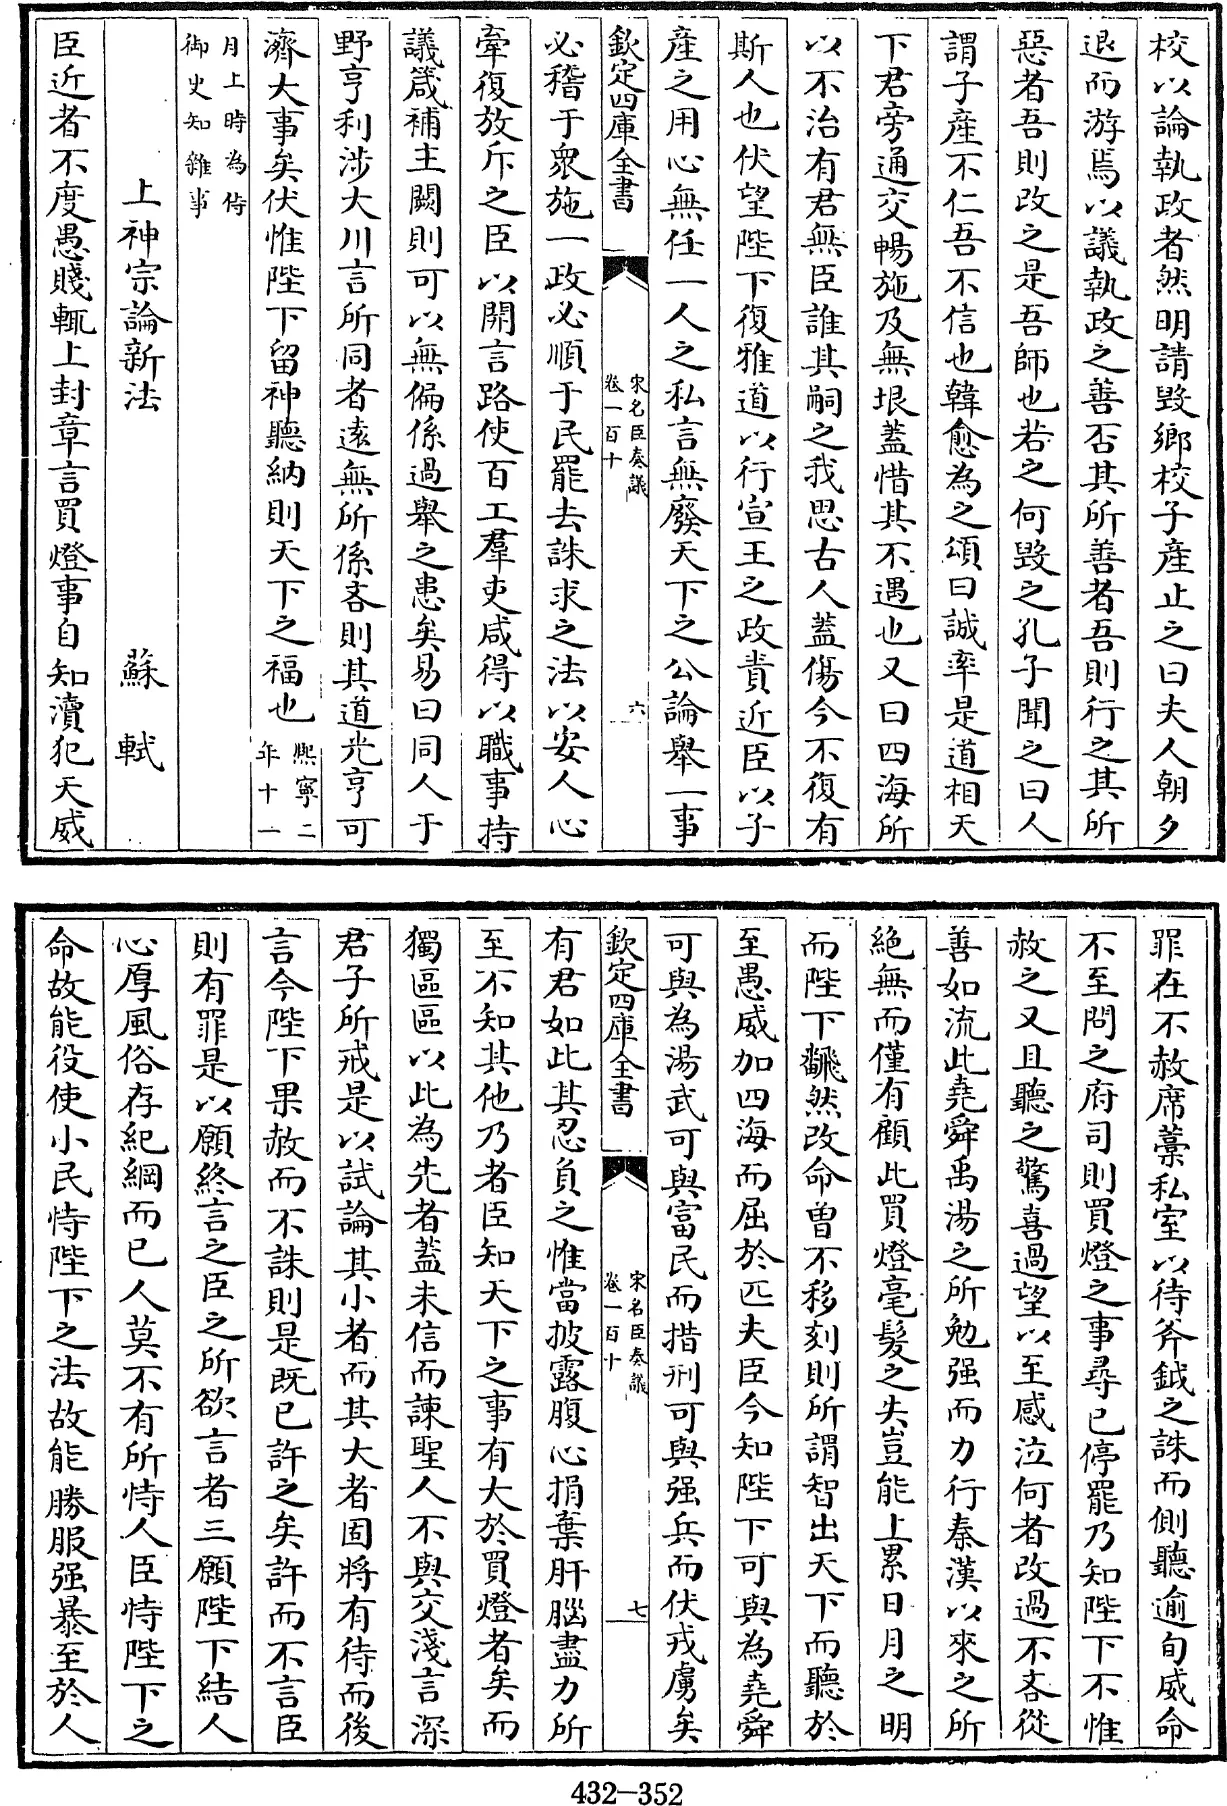 校以論執政者然明請毀鄉校子產止之曰夫人朝夕
退而游焉以議執政之善否其所善者吾則行之其所
惡者吾則改之是吾師也若之何毀之孔子聞之曰人
謂子產不仁吾不信也韓愈為之頌曰誠率是道相天
下君旁通交暢施及無垠蓋惜其不遇也又曰四海所
以不治有君無臣誰其嗣之我思古人蓋傷今不復有
斯人也伏望陛下復雅道以行宣王之政責近臣以子
產之用心無任一人之私言無廢天下之公論舉一事
欽定四庫全書
宋名臣奏議
卷一百十
六
必稽于衆施一政必順于民罷去誅求之法以安人心
牽復放斥之臣以開言路使百工羣吏咸得以職事持
議箴補主闕則可以無偏係過舉之患矣易曰同人于
野亨利涉大川言所同者遠無所係吝則其道光亨可
濟大事矣伏惟陛下留神聽納則天下之福也熙寧二
年十一
月上時為侍
御史知雜事
上神宗論新法
蘇軾
臣近者不度愚賤輒上封章言買燈事自知瀆犯天威
罪在不赦席藁私室以待斧鉞之誅而側聽逾旬威命
不至問之府司則買燈之事尋已停罷乃知陛下不惟
赦之又且聽之驚喜過望以至感泣何者改過不吝從
善如流此堯舜禹湯之所勉强而力行秦漢以來之所
絕無而僅有顧此買燈毫髮之失豈能上累日月之明
而陛下飜然改命曾不移刻則所謂智出天下而聽於
至愚威加四海而屈於匹夫臣今知陛下可與為堯舜
可與為湯武可與富民而措刑可與强兵而伏戎虜矣
欽定四庫全書
宋名臣奏議
卷一百十
七
有君如此其忍負之惟當披露腹心捐棄肝腦盡力所
至不知其他乃者臣知天下之事有大於買燈者矣而
獨區區以此為先者蓋未信而諫聖人不與交淺言深
君子所戒是以試論其小者而其大者固將有待而後
言今陛下果赦而不誅則是既已許之矣許而不言臣
則有罪是以願終言之臣之所欲言者三願陛下結人
心厚風俗存紀綱而已人莫不有所恃人臣恃陛下之
命故能役使小民恃陛下之法故能勝服强暴至於人
432—352